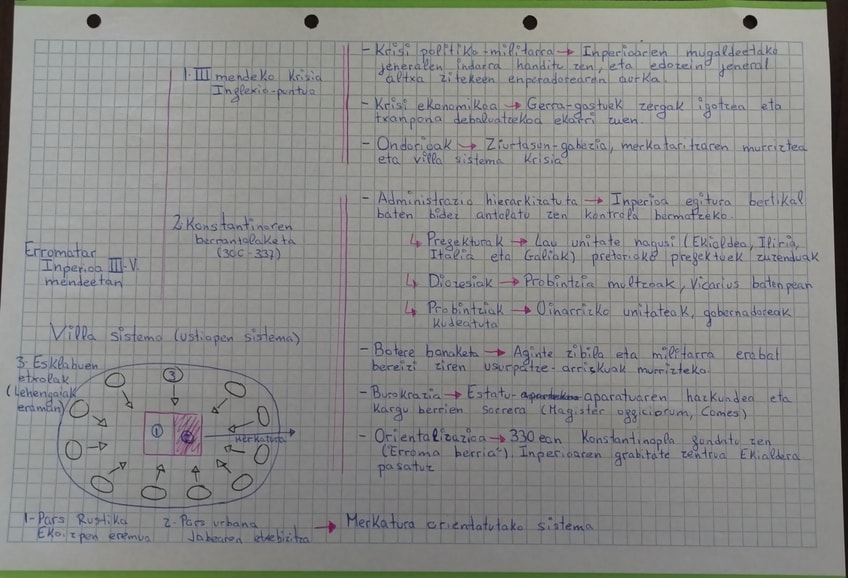 Erromatar
Inperioa III-V.
mendeetan
1. III mendeko Krisia
Inglexio-puntua
- Krisi politiko-militarra → Inperioaren mugaldeetako
jeneralen indarra handitu zen, eta edozein jeneral
altxa zitekeen enperadorearen aurka.
- Krisi ekonomikoa → Gerra-gastuek zergak igotzea eta
txanpona debaluatzekoa ekarri zuen.
- Ondorioak → Ziurtasun-gabezia, merkataritzaren murriztea
eta villa sistema Krisia
2. Konstantinoren
berrantolaketa
(306-337)
- Administrazio hierarkizatuta → Inperioa egitura bertikal
baten bidez antolatu zen kontrola bermatzeko.
↳ Prefekturak → Lau unitate nagusi (Ekialdea, Iliria,
Italia eta Galiak) pretorioko prefektuek zuzenduak
↳ Diozesiak → Probintzia multzoak, Vicarius baten pean
↳ Probintziak → Oinarrizko unitateak, gobernadoreak
Kudeatuta
- Botere banaketa → Aginte zibila eta militarra erabat
bereizi ziren usurpatze-arriskuak murrizteko.
- Burokrazia → Estatu-aparatuaren hazkundea eta
Kargu berrien sorrera (Magister officiorum, Comes)
- Orientalizazioa → 330ean Konstantinopla fundatu zen
("Erroma berria"). Inperioaren grabitate zentrua Ekialdera
pasatuz
Villa sistema (ustiapen sistema)
3. Esklabuen
etxolak
(Lehengaiak
eraman)
3
1
2
Merkatura
1- Pars Rustika
Ekoizpen eremua
2- Pars urbana
Jabearen etxebizitza
→ Merkatura orientatutako sistema